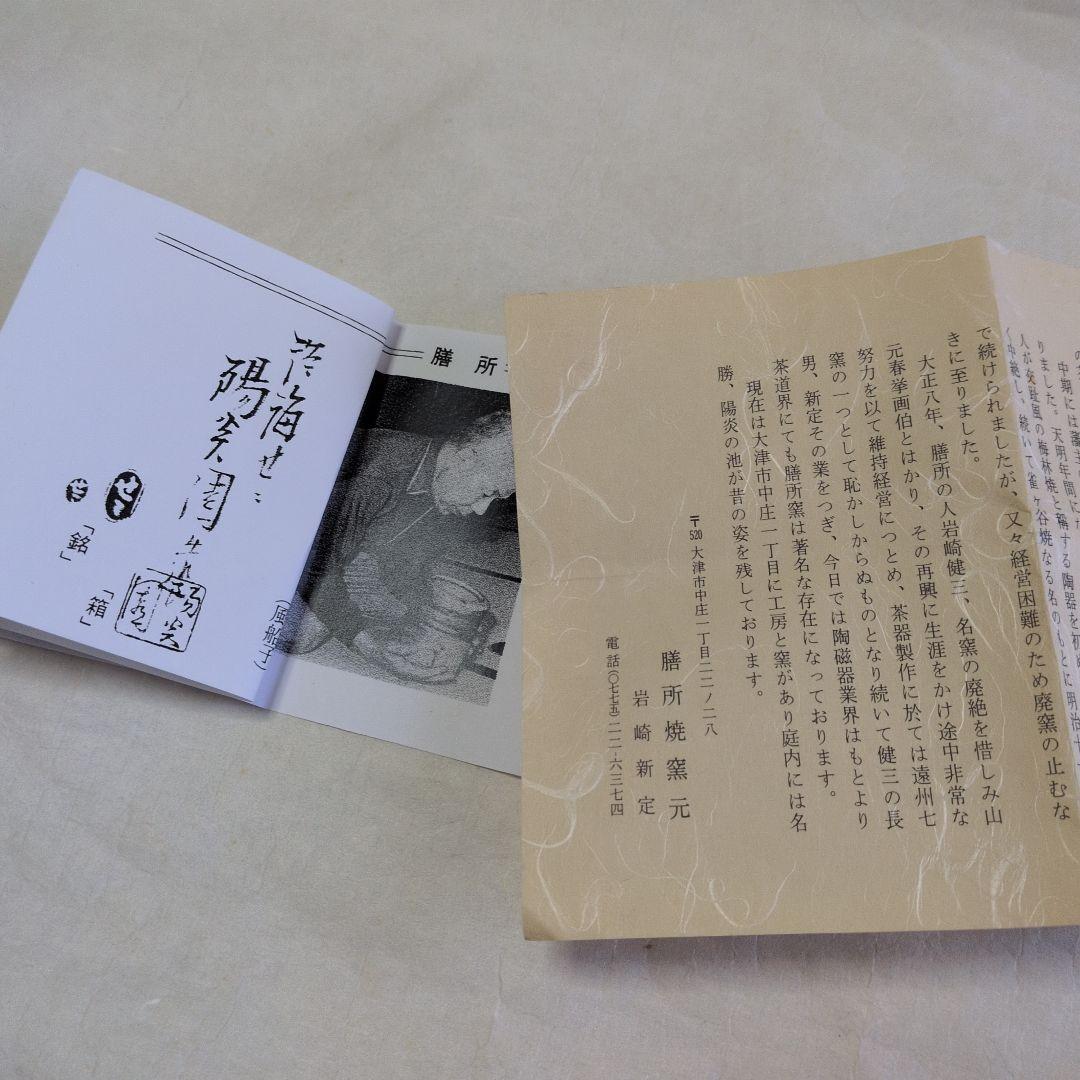 中期には藩主
りました。天明年間に
人が交趾風の梅林焼と称する陶器を初
く中絶し、続いて雀ヶ谷焼なる名のもとに明治
で続けられましたが、又々経営困難のため廃窯の止むな
きに至りました。
大正八年、膳所の人岩崎健三、名窯の廃絶を惜しみ山
元春挙画伯とはかり、その再興に生涯をかけ途中非常な
努力を以て維持経営につとめ、茶器製作に於ては遠州七
窯の一つとして恥かしからぬものとなり続いて健三の長
男、新定その業をつぎ、今日では陶磁器業界はもとより
茶道界にても膳所窯は著名な存在になっております。
現在は大津市中庄一丁目に工房と窯があり庭内には名
勝、陽炎の池が昔の姿を残しております。
〒520 大津市中庄一丁目二二ノ二八
膳所焼窯元
岩崎新定
電話〇七七五)二二-六三七四
膳所
(風船子)
陽炎園
「銘」
「箱」